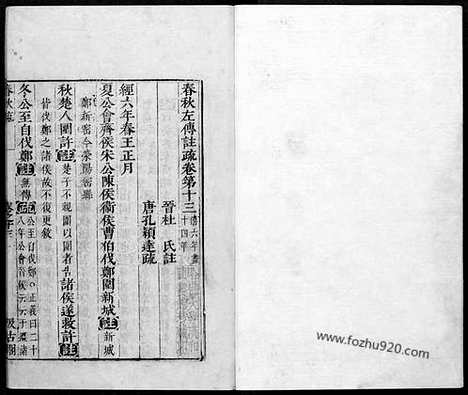 春秋左傳註疏卷第十三 僖六年盡
十四年
晉杜 氏註
唐孔穎達疏
經六年春王正月
夏公會齊侯宋公陳侯衞侯曹伯伐鄭圍新城 註 新城
鄭新密今滎陽密縣
秋楚人圍許 註 楚子不親圍以圍者告 諸侯遂救許 註
皆伐鄭之諸侯故不復更敘
冬公至自伐鄭 註 無傳 疏 公至自伐鄭○正義曰二十
八年公會晉侯
春秋疏
汲古閣
www.fozhu920.com